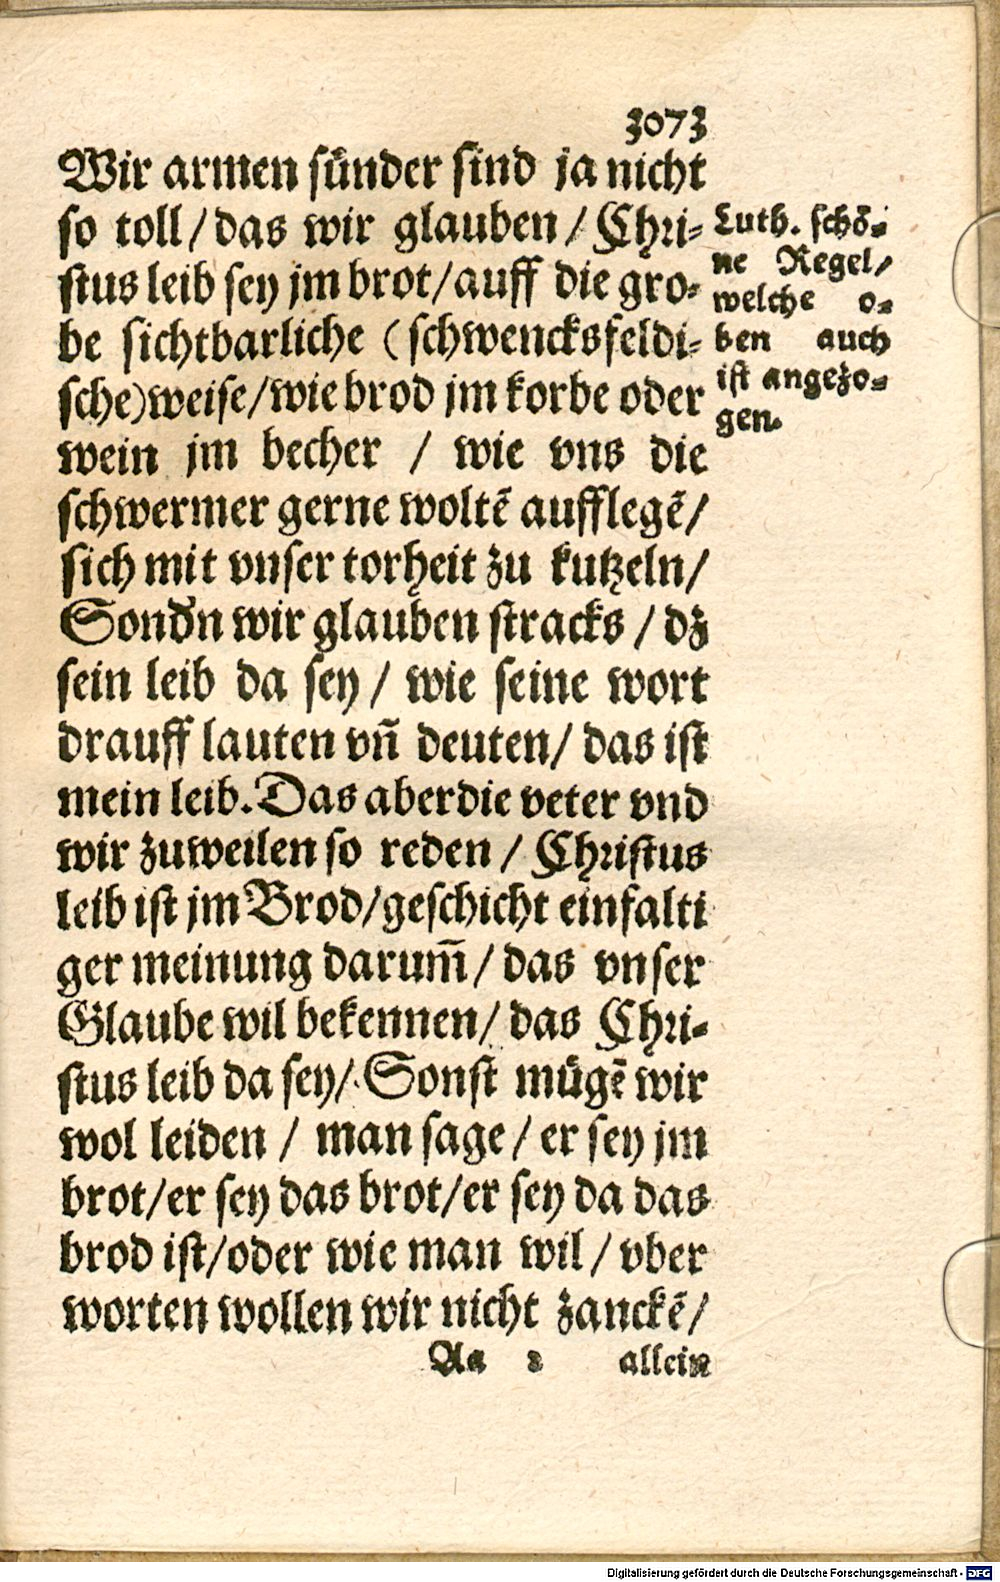 3073
Wir armen sünder sind ja nicht
so toll / das wir glauben / Chri-
stus leib sey jm brot / auff die gro-
be sichtbarliche (schwencksfeldi-
sche) weise / wie brod jm korbe oder
wein jm becher / wie vns die
schwermer gerne woltē aufflegē /
sich mit vnser torheit zu kutzeln /
Sondn wir glauben stracks / dz
sein leib da sey / wie seine wort
drauff lauten vn̄ deuten / das ist
mein leib. Das aber die veter vnd
wir zuweilen so reden / Christus
leib ist jm Brod / geschicht einfalti
ger meinung darum̄ / das vnser
Glaube wil bekennen / das Chri-
stus leib da sey / Sonst mügē wir
wol leiden / man sage / er sey jm
brot / er sey das brot / er sey da das
brod ist / oder wie man wil / vber
worten wollen wir nicht zanckē /
Aa 2 allein
Luth. schö-
ne Regel /
welche o-
ben auch
ist angezo-
gen.
Digitalisierung gefördert durch die Deutsche Forschungsgemeinschaft - DFG